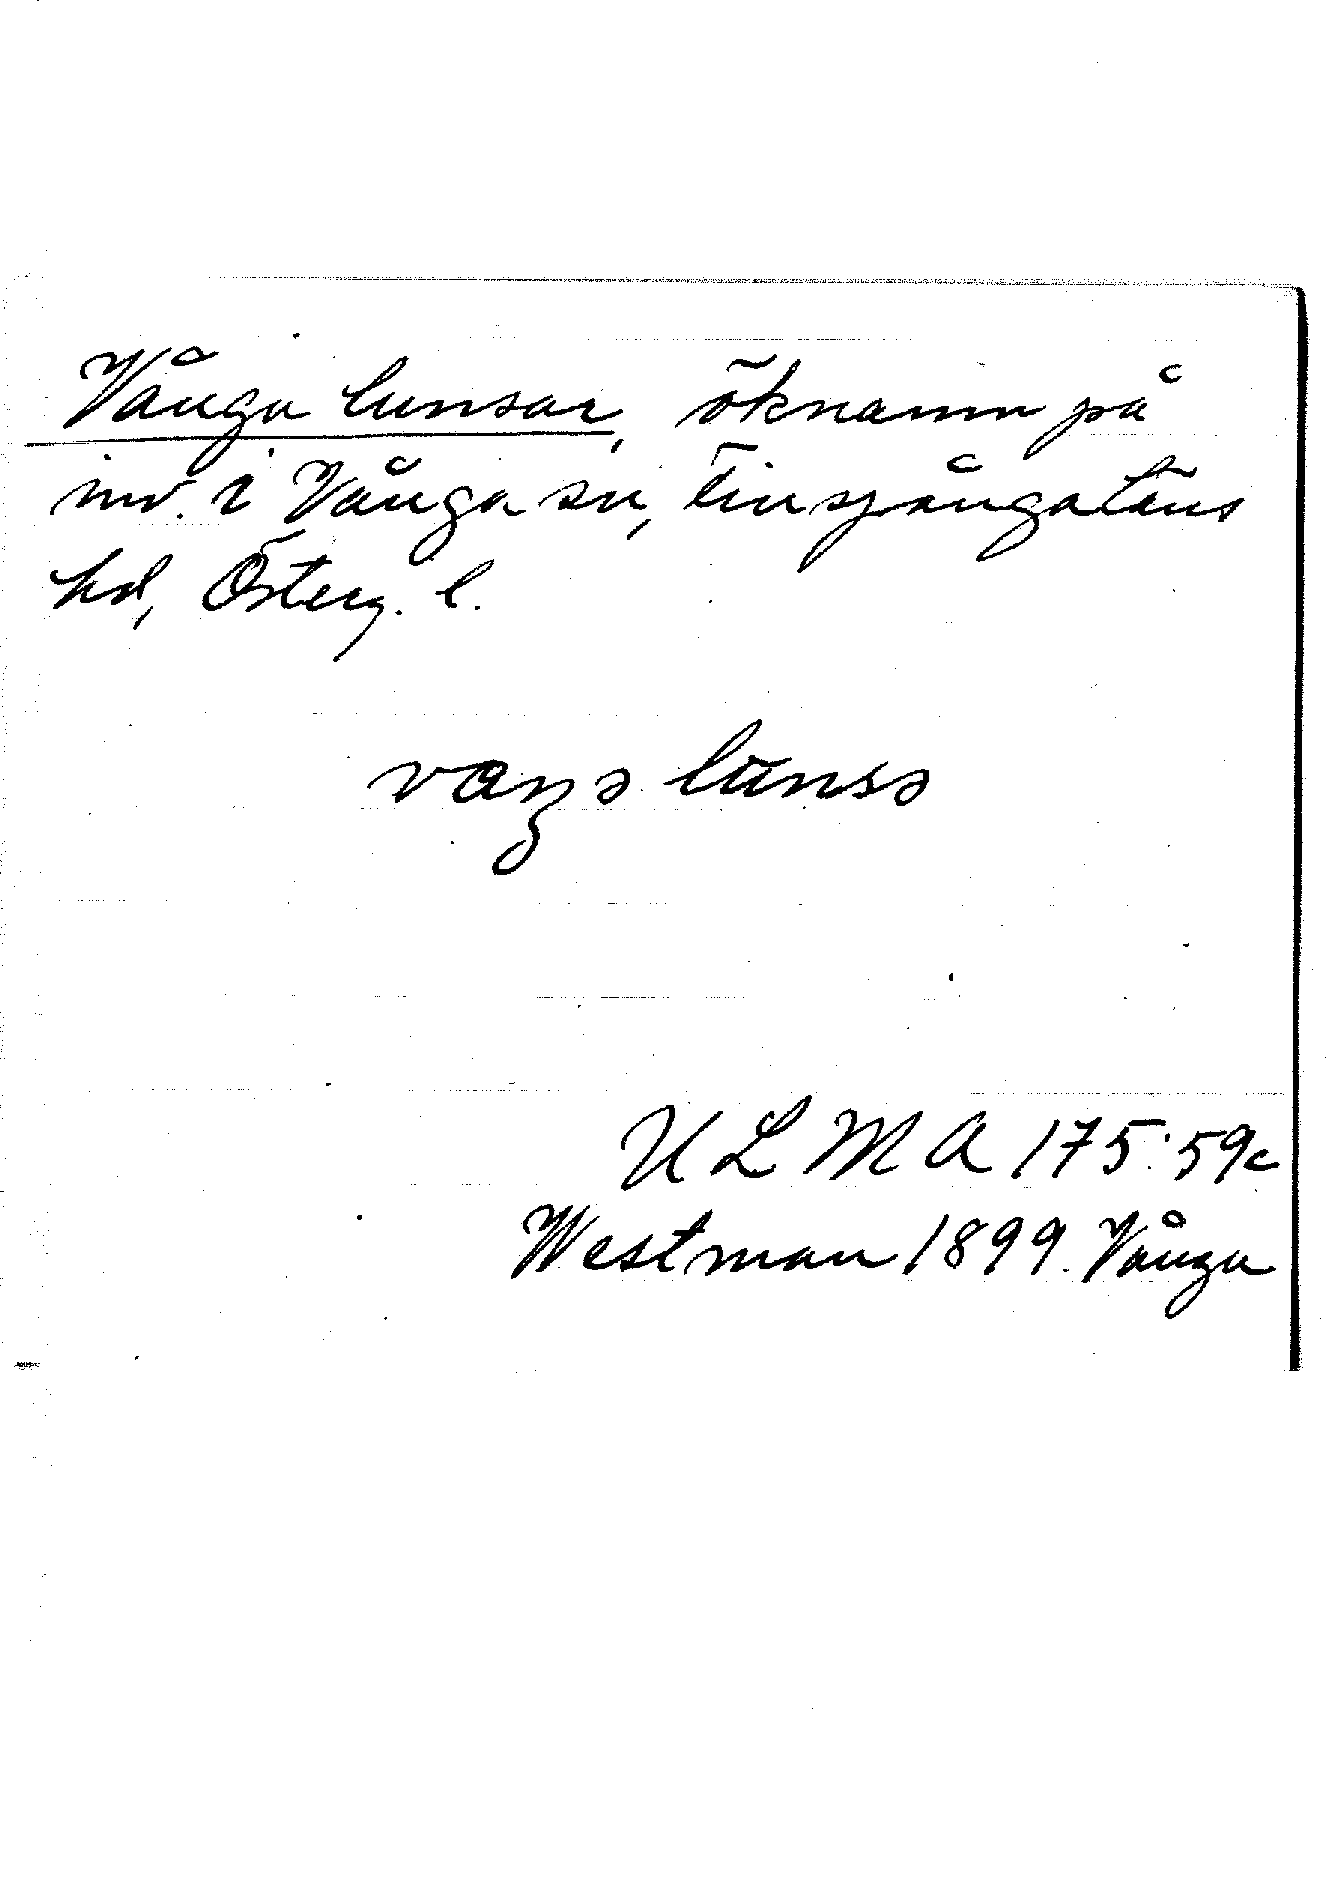 Vånga lunsar, öknamn på
inv. i Vånga sn, Finspångaläns
hd, Österg. l.
vaŋə lunsə
ULMA 175:59c
Westman 1899. Vånga